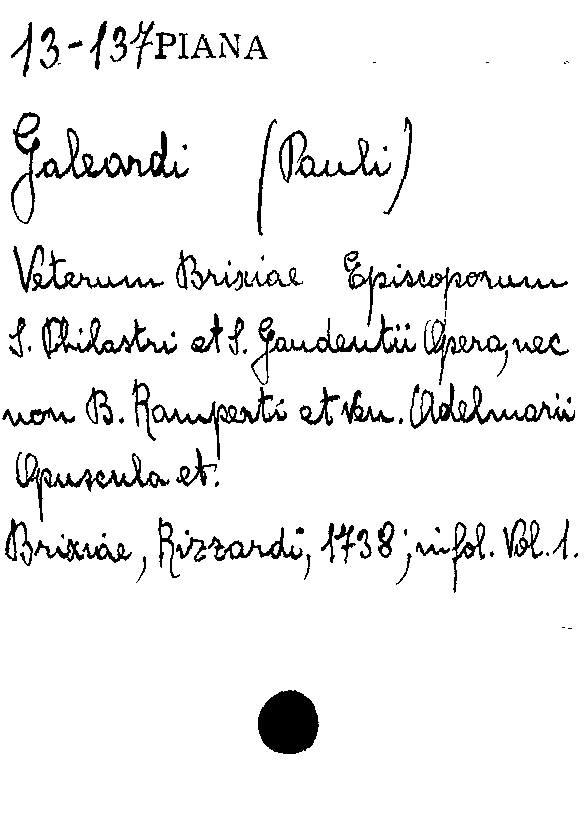 13-137 PIANA
Galeardi (Pauli)
Veterum Brixiae Episcoporum
S. Philastri et S. Gaudentii Opera, nec
non B. Ramperti et Ven. Adelmarii
Opuscula et.
Brixiae, Rizzardi, 1738; in fol. Vol. 1.